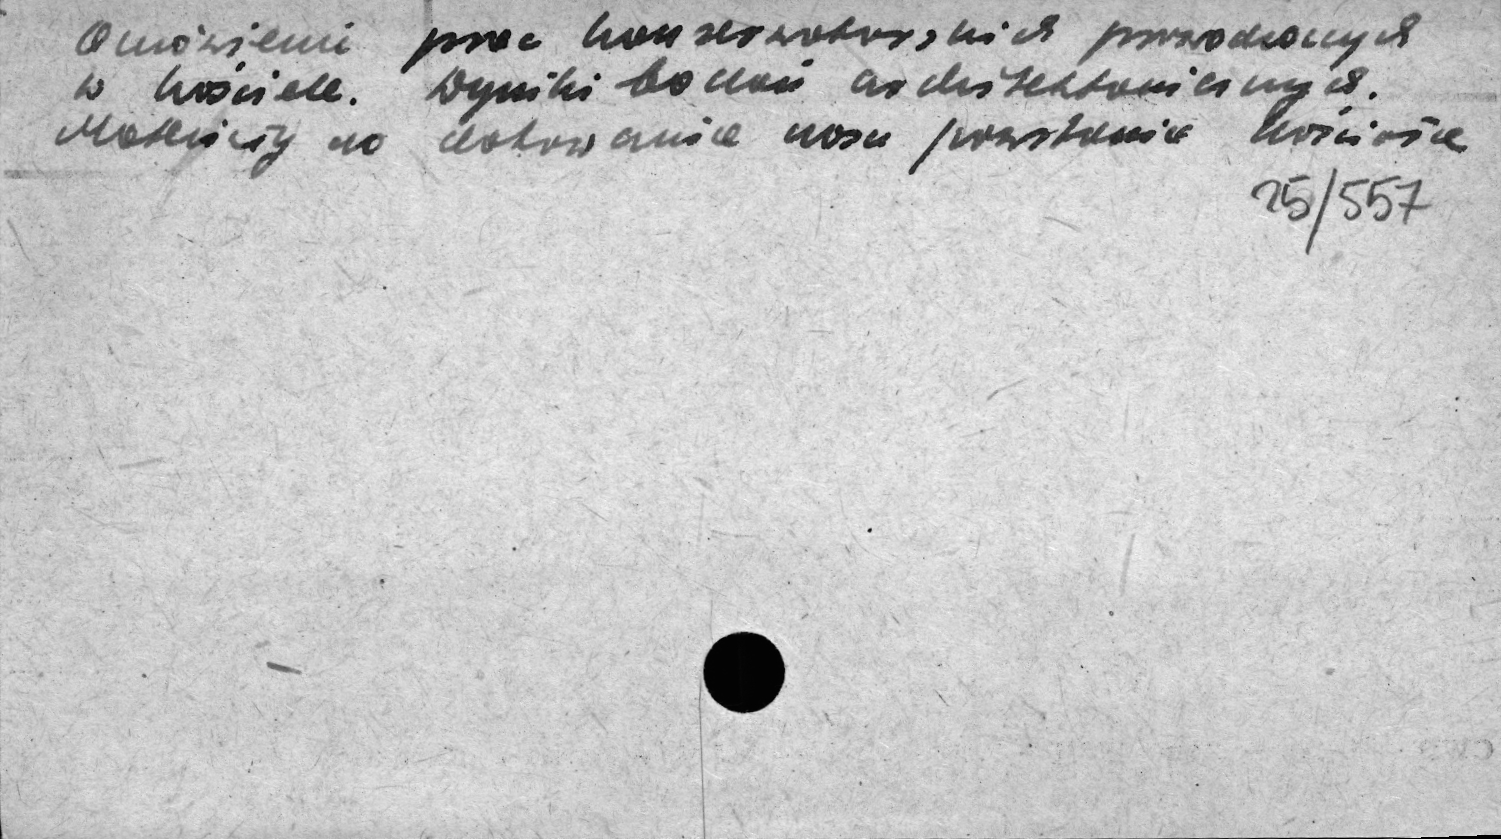 Omówienie prac konserwatorskich prowadzonych
w kościele. Wyniki badań architektonicznych.
do datowania czasu powstania kościoła
25/557